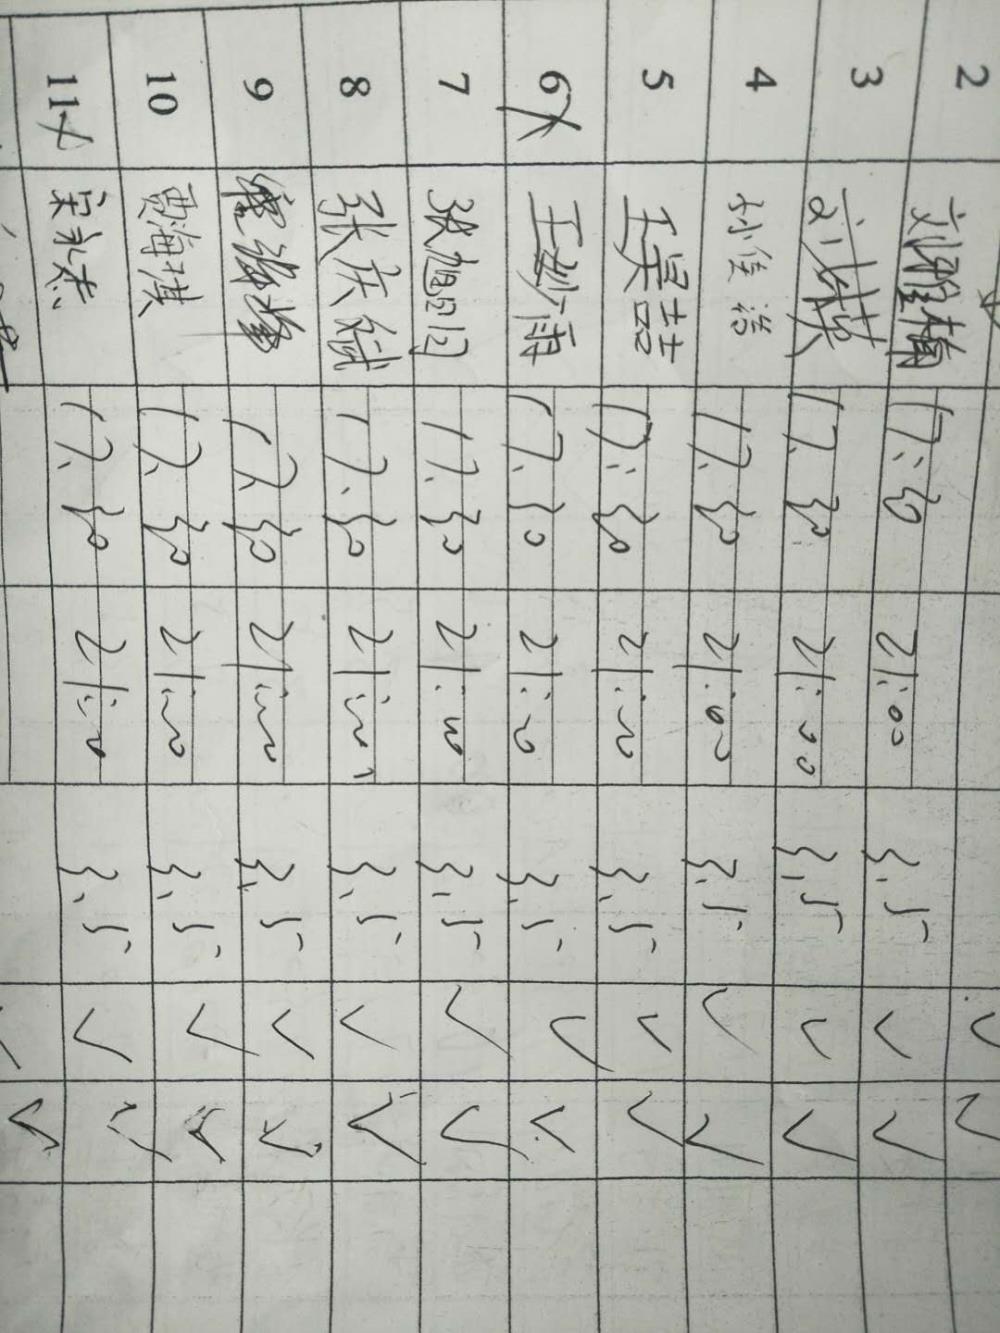 2 刘 17:30 21:00 3.5 ✓ ✓
3 刘 17:30 21:00 3.5 ✓ ✓
4 孙佳浩 17:30 21:00 3.5 ✓ ✓
5 王昊喆 17:30 21:00 3.5 ✓ ✓
6 王妙雨 17:30 21:00 3.5 ✓ ✓
7 张旭阳 17:30 21:00 3.5 ✓ ✓
8 张庆斌 17:30 21:00 3.5 ✓ ✓
9 17:30 21:00 3.5 ✓ ✓
10 贾海琪 17:30 21:00 3.5 ✓ ✓
11 宋永杰 17:30 21:00 3.5 ✓ ✓